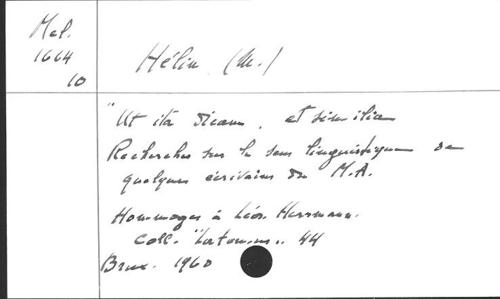 Mel.
1664
10
Hélin (M.)
"Ut ita dicam, et similia
Recherches sur le sens linguistique de
quelques écrivains du M.A.
Hommages à Léon Herrmann.
Coll. "Latomus" 44
Brux. 1960